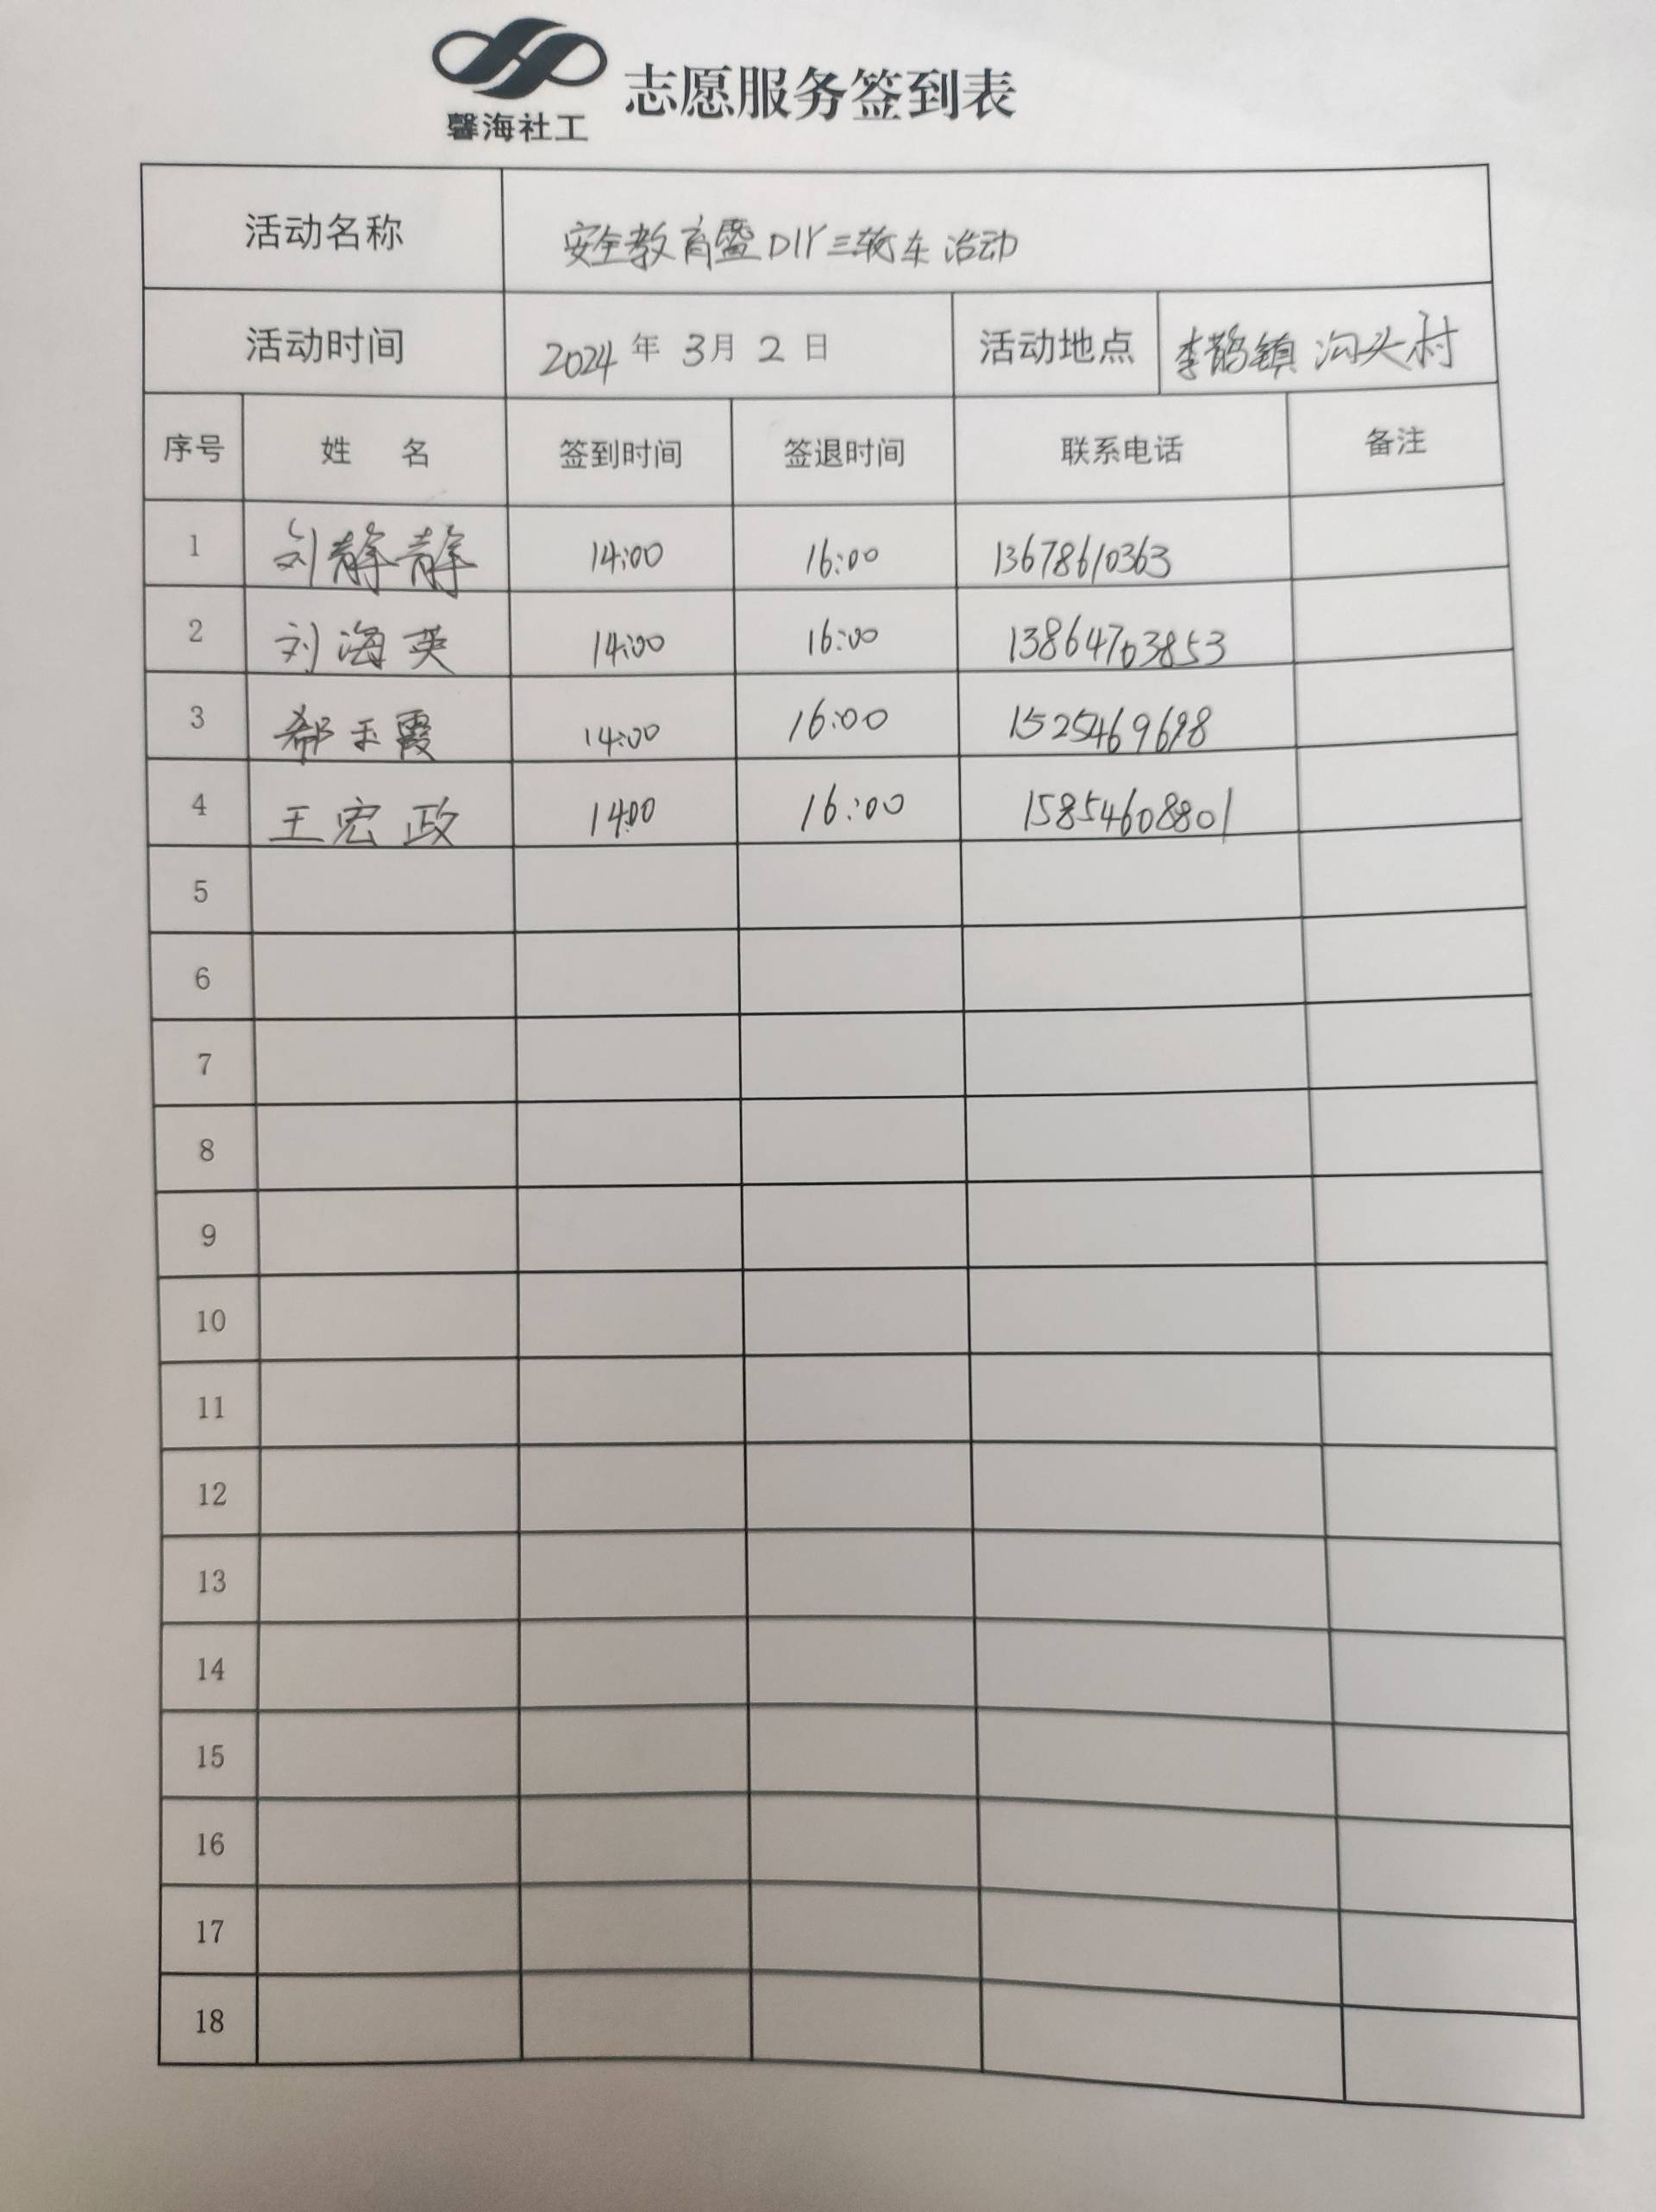 馨海社工
志愿服务签到表
活动名称 安全教育暨DIY三轮车活动
活动时间 2024年3月2日 活动地点 李鹊镇沟头村
序号 姓名 签到时间 签退时间 联系电话 备注
1 刘静静 14:00 16:00 13678610363
2 刘海英 14:00 16:00 13864763853
3 郗玉霞 14:00 16:00 1525469698
4 王宏政 14:00 16:00 15854608801
5
6
7
8
9
10
11
12
13
14
15
16
17
18